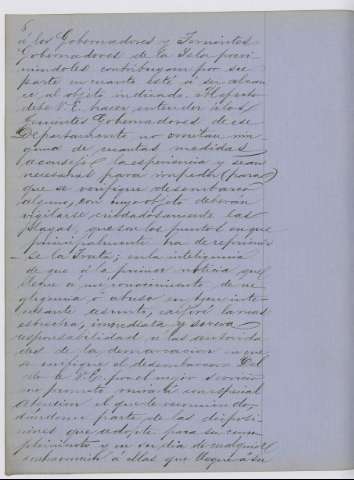 á los Gobernadores y Tenientes
Gobernadores de la Isla previ-
niendoles contribuyan por su
parte en cuanto esté á su alcan-
ce al objeto indicado. Al efecto
debe V.E. hacer entender á los
Tenientes Gobernadores de ese
Departamento no omitan nin-
guna de cuantas medidas
aconseje la esperiencia y sean
necesarias para impedir (para)
que se verifique desembarco
alguno, con cuyo objeto deberán
vigilarse cuidadosamente las
playas, que son los puntos en que
principalmente ha de reprimir-
se la Trata; en la inteligencia
de que á la primer noticia que
llegue á mi conocimiento de ne-
gligencia ó abuso en tan inte-
resante asunto, exijiré la mas
estrecha, inmediata y severa
responsabilidad á las autorida-
des de la demarcacion en que
se verifique el desembarco. Del
celo de V.E. por el mejor servicio
me prometo mirará con especial
atencion el que le recomiendo,
dándome parte de las disposi-
ciones que adopte para su cum-
plimiento y en su dia de cualquier
á ellas que llegue á su